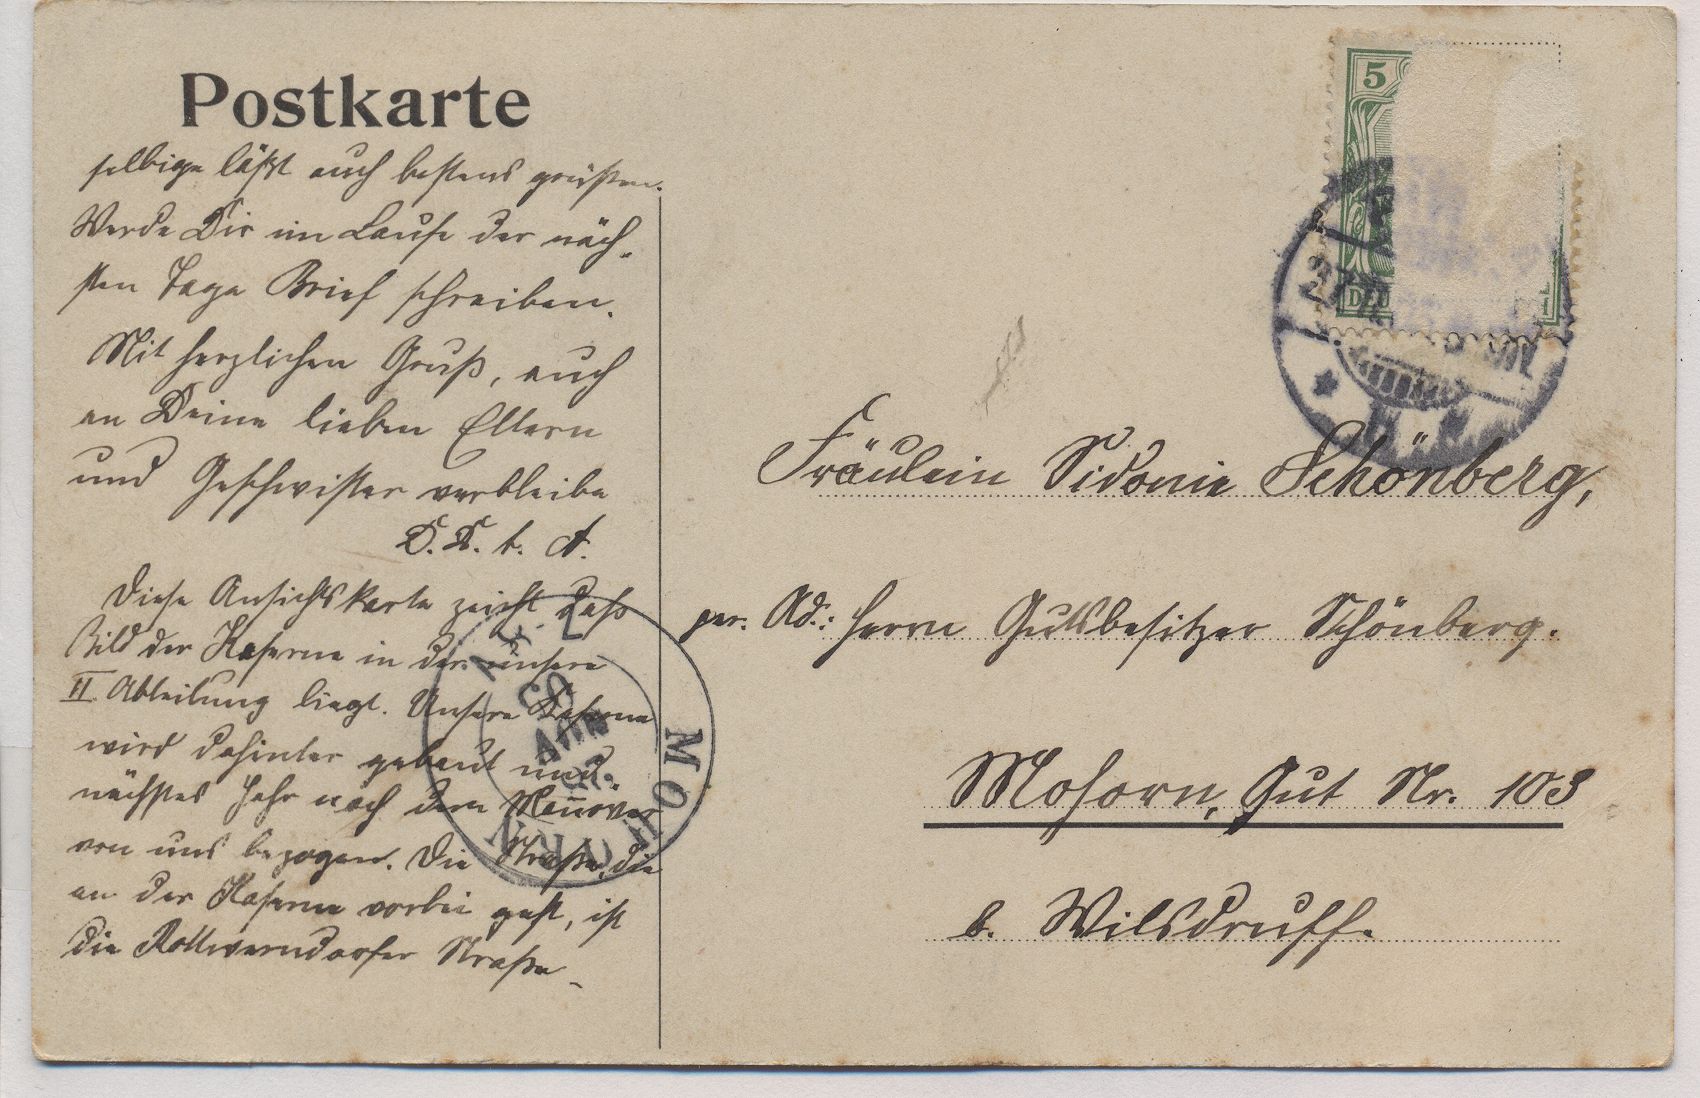 Postkarte
selbige läßt auch bestens grüßen.
Werde Dir im Laufe der näch-
sten Tage Brief schreiben.
Mit herzlichen Gruß, auch
an Deine lieben Eltern
und Geschwister verbleibe
D. D. l. A.
Diese Ansichtskarte zeicht daß
Bild der Kaserne in der unsere
II Abteilung liegt. Unsere Kaserne
wird dahinter gebaut und
nächstes Jahr nach dem Manöver
von uns bezogen. Die Straße, die
an der Kaserne vorbei geht, ist
die Rottwerndorfer Straße
Fräulein Sidonie Schönberg,
per. Ad.: Herrn Gutsbesitzer Schönberg.
Mohorn, Gut Nr. 103
b. Wilsdruff.
5
MOHORN
27